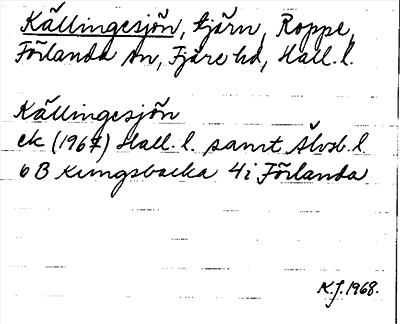 Källingesjön, tjärn, Roppe,
Förlanda sn, Fjäre hd, Hall. l.
Källingesjön
ek (1967) Hall. l. samt Älvsb. l.
6 B Kungsbacka 4i Förlanda
K.J. 1968.